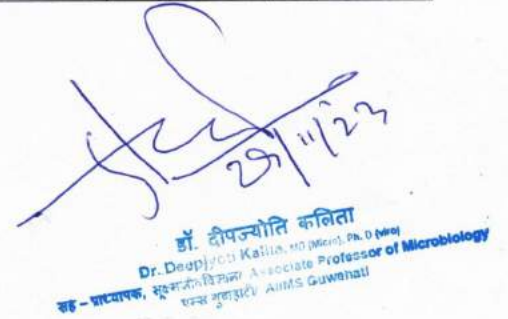 29/11/23
डॉ. दीपज्योति कलिता
Dr. Deepjyoti Kalita, MD (Micro), Ph. D (Viro)
सह – प्राध्यापक, सूक्ष्मजीवविज्ञान/ Associate Professor of Microbiology
एम्स गुवाहाटी/ AIIMS Guwahati